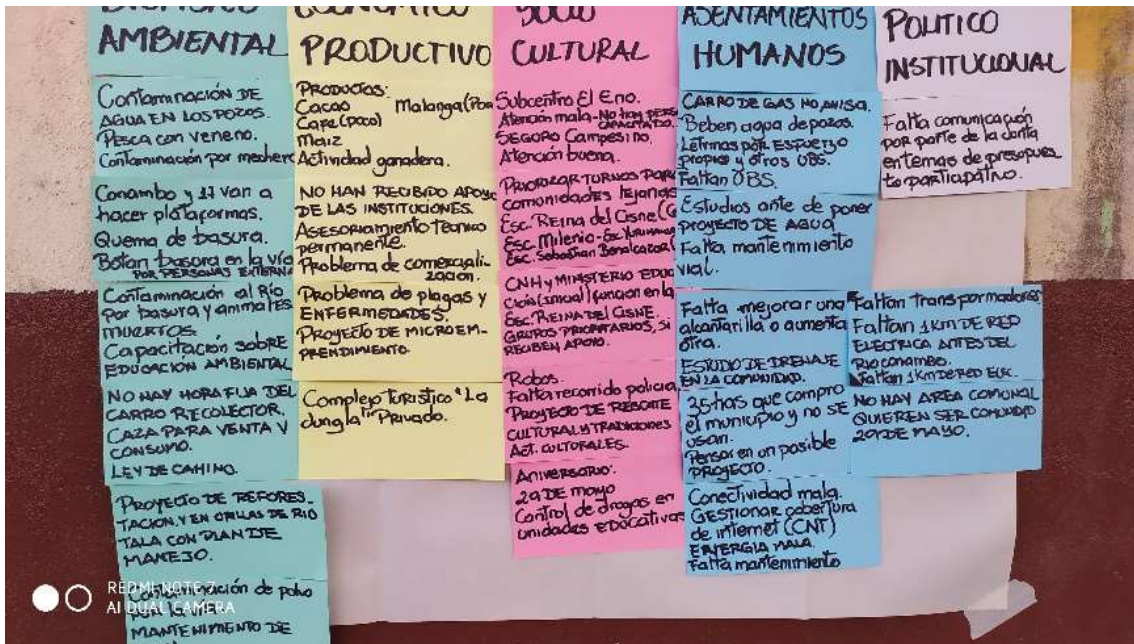 AMBIENTAL
Contaminación DE
AGUA EN LOS POZOS.
Pesca con veneno.
Contaminación por mechero
Conambo y 17 van a
hacer plataformas.
Quema de basura.
Botan basura en la vía
POR PERSONAS EXTERNA
Contaminación al Río
Por basura y animales
MUERTOS
Capacitación sobre
EDUCACIÓN AMBIENTAL
NO HAY HORA FIJA DEL
CARRO RECOLECTOR,
CAZA PARA VENTA Y
CONSUMO.
LEY DE CAMINO.
PROYECTO DE REFORES_
TACION, Y EN ORILLAS DE RIO
TALA CON PLAN DE
MANEJO.
Contaminación de polvo
MANTENIMIENTO DE
ECONOMICO
PRODUCTIVO
PRODUCTOS:
Cacao Malanga (Poc
Cafe (poco)
Maiz
Actividad ganadera.
NO HAN RECIBIDO APOYO
DE LAS INSTITUCIONES.
Asesoramiento Tecnico
permanente.
Problema de comerciali_
zacion.
Problema de plagas y
ENFERMEDADES.
PROYECTO DE MICROEM_
PRENDIMIENTO.
Complejo Turistico "La
Jungla" Privado.
SOCIO
CULTURAL
Subcentro El Eno.
Atención mala - No hay PERS
CAPACITADO.
SEGURO Campesino.
Atención buena.
Priorizar TURNOS PARA
comunidades lejanas
Esc. Reina del Cisne (
Esc. Milenio - Esc
Esc. Sebastian Benalcazar (
CNH y MINISTERIO EDUC
(inicial) funcion en la
Esc. REINA DEL CISNE.
GRUPOS PRIORITARIOS, SI
RECIBEN APOYO.
Robos.
Falta recorrido policia,
PROYECTO DE RESCATE
CULTURAL Y TRADICIONES
Act. CULTURALES.
Aniversario:
29 DE mayo
Control de drogas en
unidades EDUCATIVAS
ASENTAMIENTOS
HUMANOS
CARRO DE GAS NO AVISA.
Beben agua de pozos.
Letrinas por Esfuerzo
propio y otros UBS.
Faltan UBS.
Estudios ante de poner
PROYECTO DE AGUA
Falta mantenimiento
vial.
Falta mejorar una
alcantarilla o aumenta
otra.
ESTUDIO DE DRENAJE
EN LA COMUNIDAD.
35 has que compro
el municipio y no SE
usan.
Pensar en un posible
PROYECTO.
Conectividad mala.
GESTIONAR cobertura
de internet (CNT)
ENERGIA MALA
Falta mantenimiento
Faltan transformadores
Faltan 1KM DE RED
ELECTRICA ANTES DEL
Rio conambo.
Faltan 1KM DE RED ELEC.
NO HAY AREA COMUNAL
QUIEREN SER COMUNIDAD
29 DE MAYO.
POLITICO
INSTITUCIONAL
Falta comunicación
por parte de la Junta
en temas de presupues
to participativo.
REDMI NOTE 7
AI DUAL CAMERA